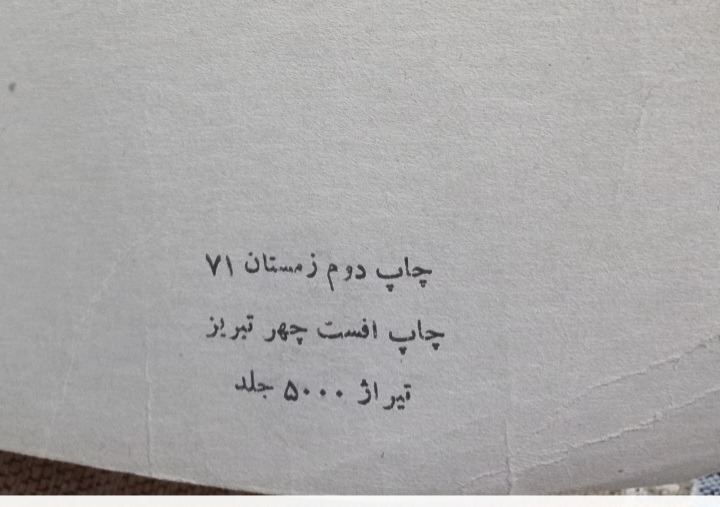 چاپ دوم زمستان ۷۱
چاپ افست چهر تبریز
تیراژ ۵۰۰۰ جلد